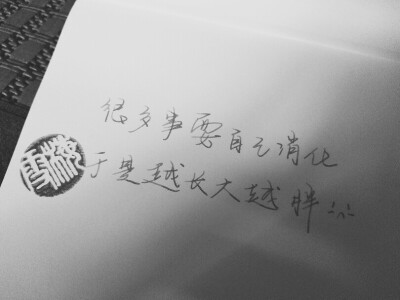 很多事要自己消化
于是越长大越胖